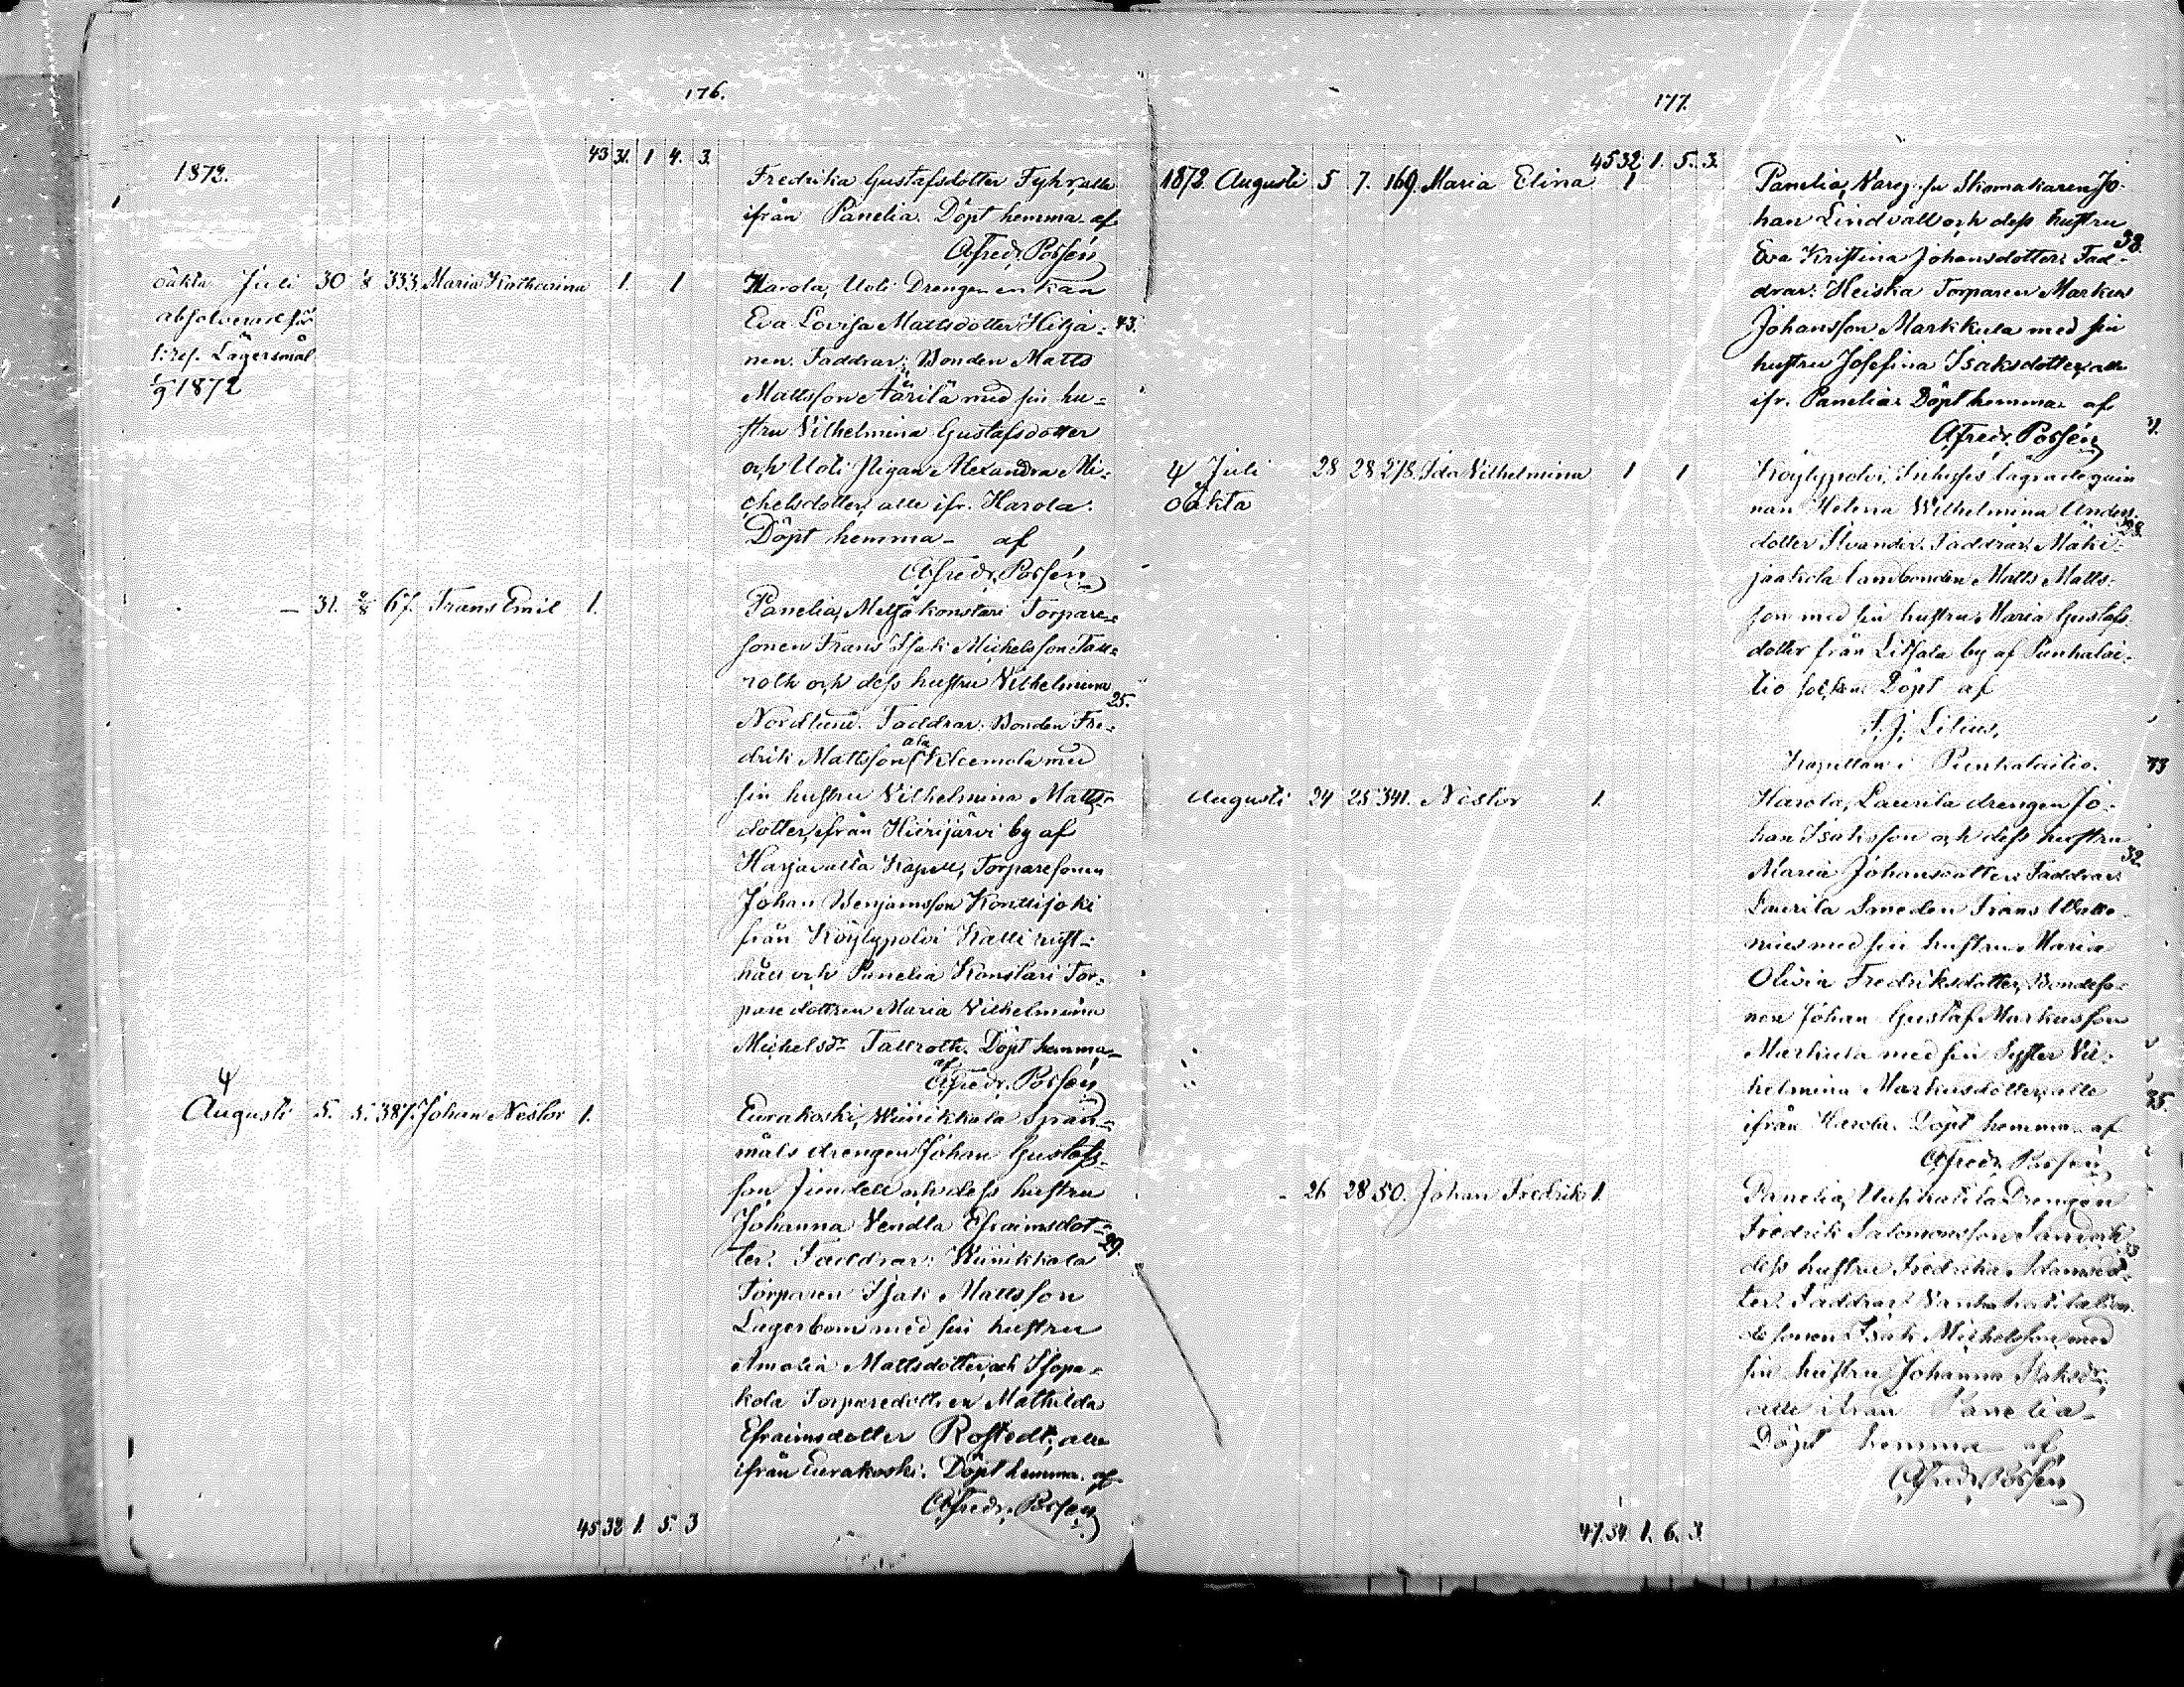 176.
43 31. 1 4. 3.
1872.
Fredrika Gustafsdotter Fyhr, alla
ifrån Panelia. Döpt hemma af
Afredr. Possén
oäkta Juli 30 1/8 333. Maria Katharina 1. 1
absolverad för
1:res. Lägersmål
1/9 1872
Harola, Uoti Drengeenkan
Eva Lovisa Mattsdotter Hiljä= 43.
nen. Faddrar: Bonden Matts
Mattsson Äärilä med sin hu=
stru Vilhelmina Gustafsdotter
och Uoti Pigan Alexandra Mi=
chelsdotter, alle ifr. Harola.
Döpt hemma af
Afredr. Possén
— 31. 2/8 67. Frans Emil 1.
Panelia, Konstari Torpare=
sonen Frans Isak Michelsson Tall=
roth och dess hustru Vilhelmina 25.
Nordlund. Faddrar: Bonden Fre=
drik Mattsson ala med
sin hustru Vilhelmina Matts=
dotter, ifrån Hiirijärvi by af
Harjavalta Kapell, Torparesonen
Johan Benjamsson Konttijoki
från Köylypolvi Kalli rust=
håll och Panelia Konstari Tor=
pare dottren Maria Vilhelmina
Michelsdr Tallroth. Döpt hemma
af
Afredr. Possén
Augusti 5. 5. 387. Johan Nestor 1.
Eurakoski, Wiinikkala Span=
måls drengen Johan Gustafs=
son Jundell och dess hustru
Johanna Vendla Efraimsdot= 29.
ter. Faddrar: Wiinikkala
Torparen Isak Mattsson
Lagerbom med sin hustru
Amalia Mattsdotter och Isopa=
kola Torparedottren Mathilda
Efraimsdotter Rostedt, alla
ifrån Eurakoski. Döpt hemma af
Afredr. Possén
45 32 1. 5. 3
177.
45 32 1. 5. 3.
1872. Augusti 5 7. 169. Maria Elina 1
Panelia, Skomakaren Jo=
han Lindvall och dess hustru 38.
Eva Kristina Johansdotter. Fad=
drar: Heiska Torparen Markus
Johansson Markkula med sin
hustru Josefina Isaksdotter, alle
ifr. Panelia. Döpt hemma af
Afredr. Possén
Juli 28 28 278. Ida Vilhelmina 1 1
oäkta
Köylypolvi, Inhyses lägrade qvin
nan Helena Wilhelmina Anders= 28.
dotter Faddrar: Mäki=
jaakola landbonden Matts Matts=
son med sin hustru Maria Gustafs
dotter från by af Punkalai=
tio socken. Döpt af
F. J. Lilius,
Kapellan i Punkalaitio.
Augusti 24 25 341. Nestor 1.
Harola, Laurila drengen Jo=
han Isaksson och dess hustru 32
Maria Johansdotter. Faddrar:
Laurila Smeden Frans
med sin hustru Maria
Olivia Fredriksdotter, Bondeso=
nen Johan Gustaf Markusson
Markula med sin Syster Vil=
helmina Markusdotter, alle
ifrån Harola. Döpt hemma af
Afredr. Possén
- 26 28 50. Johan Fredrik 1.
Panelia, Drengen
Fredrik Salomonsson och 33
dess hustru Fredrika Adamsdot=
ter. Faddrar: Bon=
desonen Isak Michelsson med
sin hustru Johanna Isaksdr.
alle ifrån Panelia
Döpt hemma af
Afredr. Possén
47. 34 1. 6. 3.